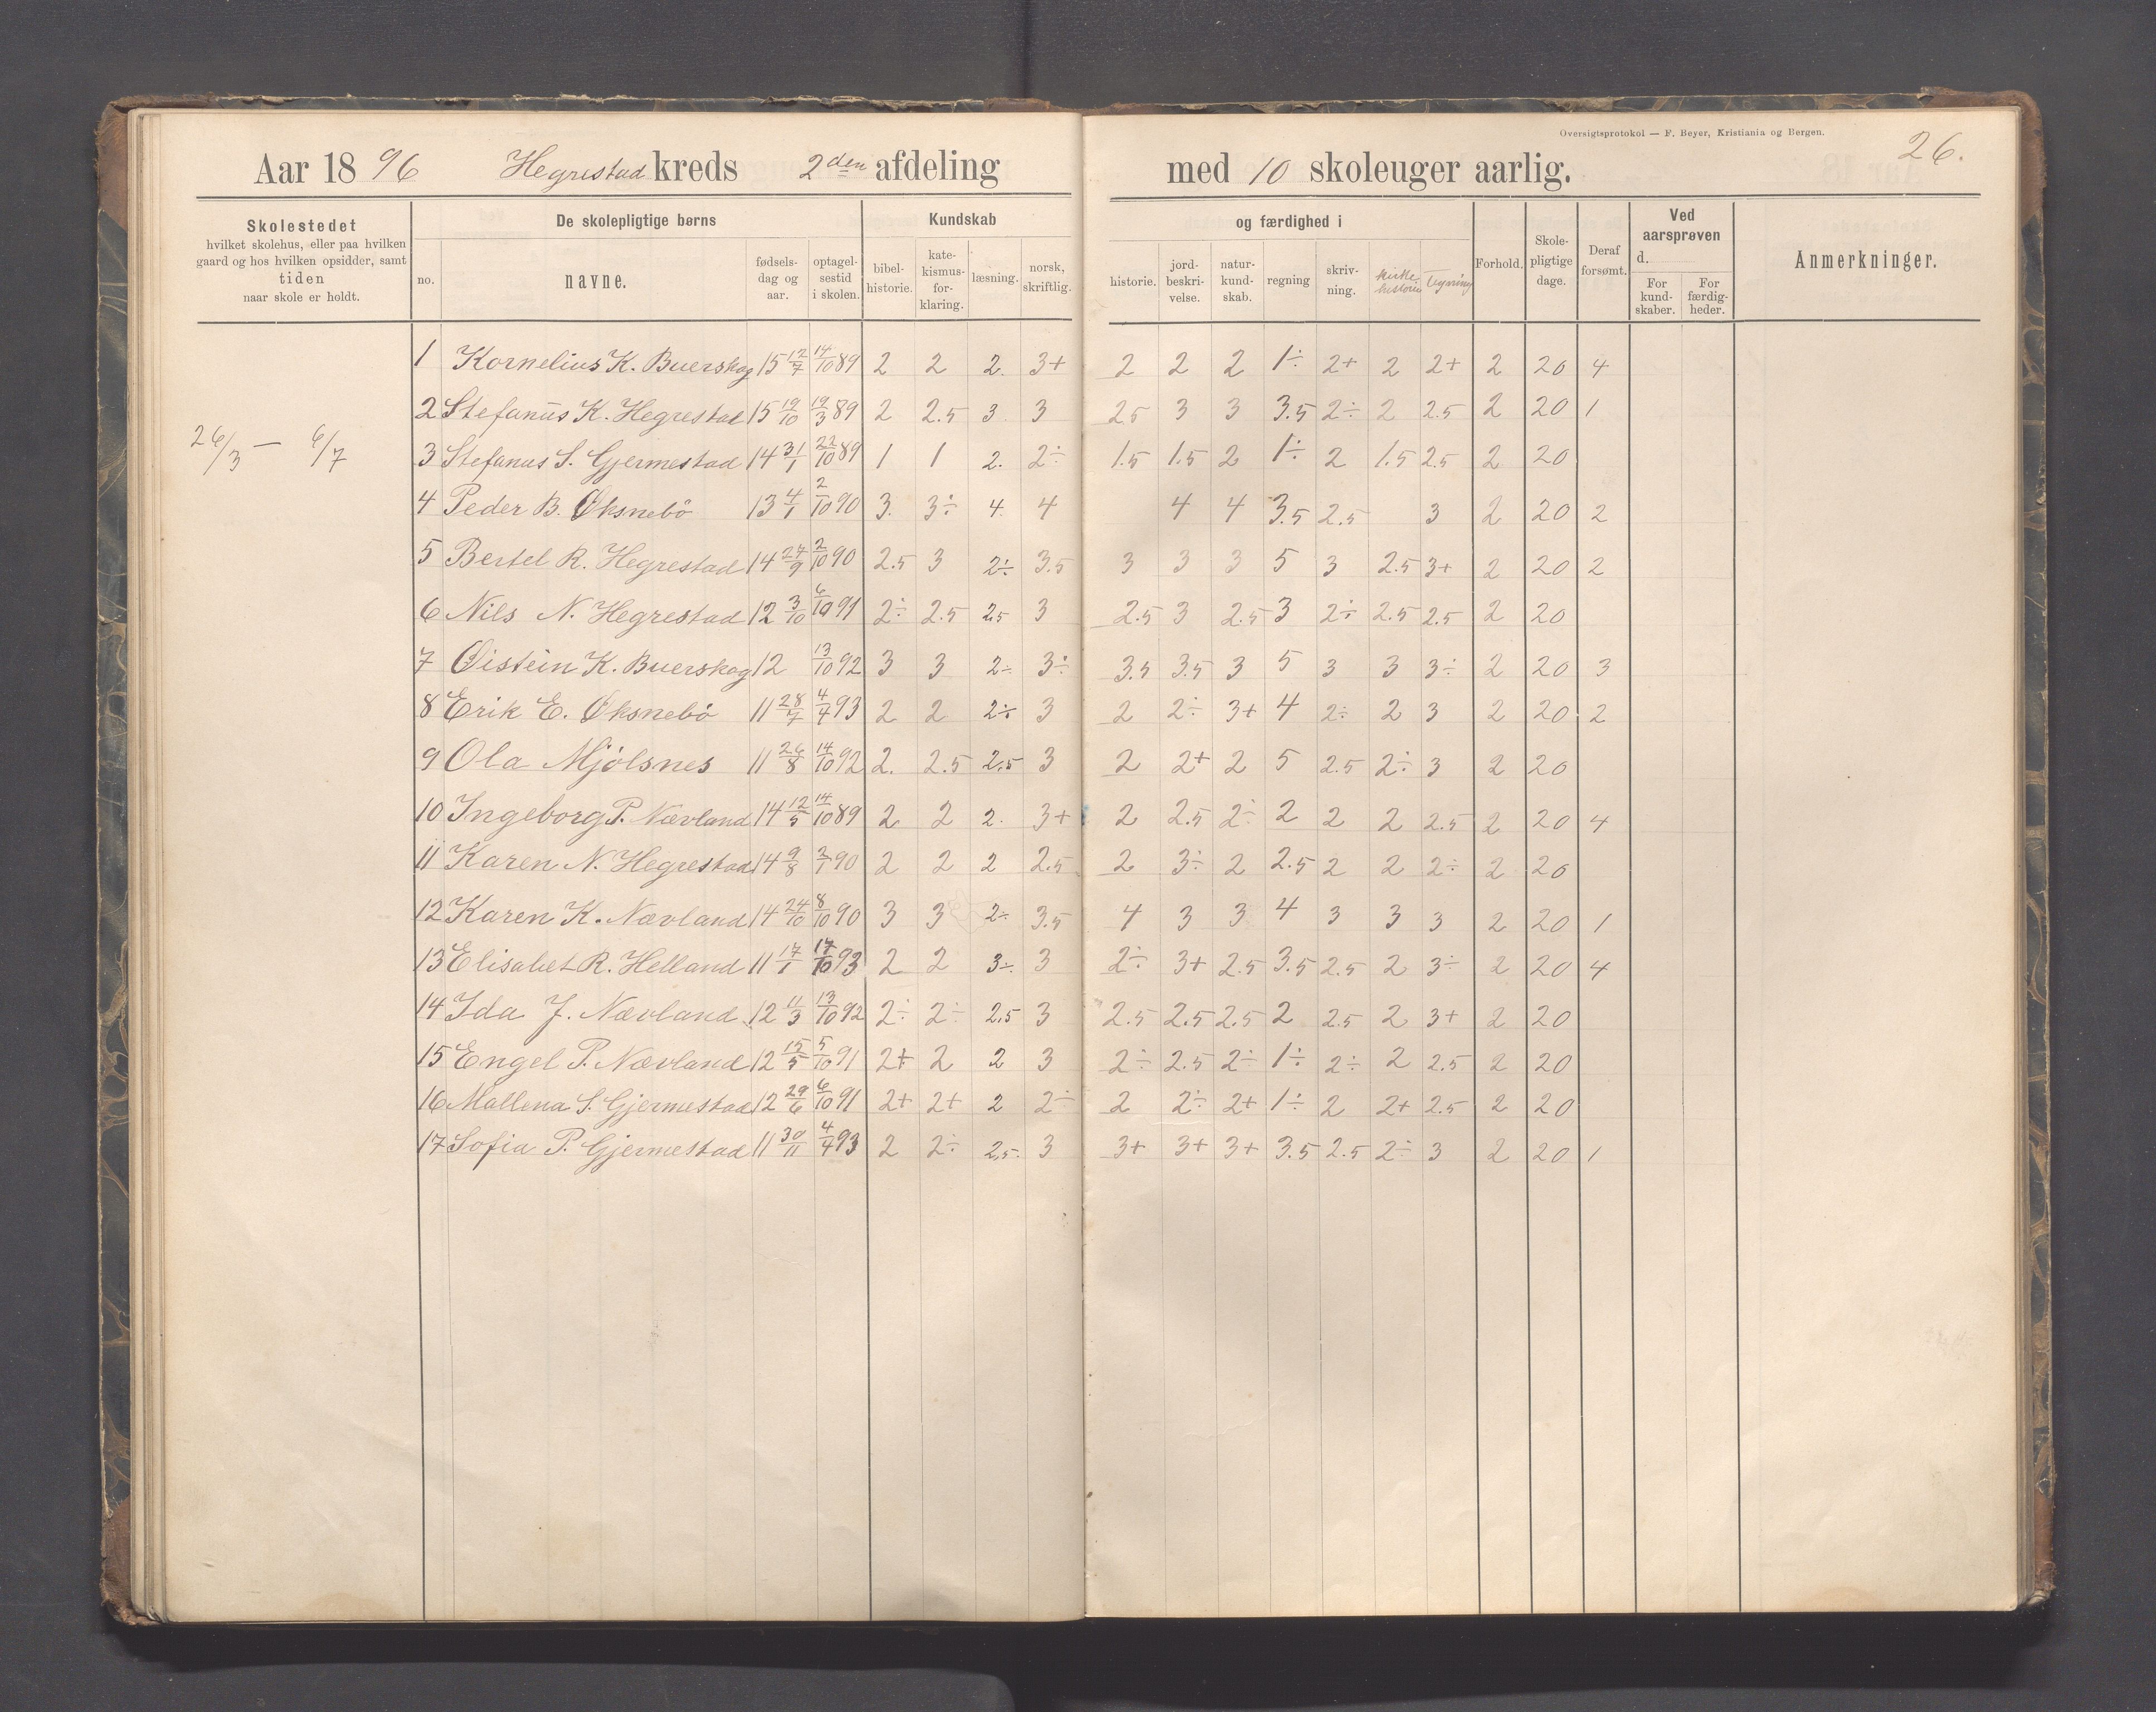 Oversigtsprotokol — F. Beyer, Kristiania og Bergen.
26.
Aar 1896 Hegrestad kreds 2den afdeling med 10 skoleuger aarlig.
Skolestedet hvilket skolehus, eller paa hvilken gaard og hos hvilken opsidder, samt tiden naar skole er holdt.
De skolepligtige børns
no. navne. fødselsdag og aar. optagelsestid i skolen.
Kundskab og færdighed i
bibelhistorie. katekismusforklaring. læsning. norsk, skriftlig. historie. jordbeskrivelse. naturkundskab. regning skrivning. kirkehistorie Tegning
Forhold. Skolepligtige dage. Deraf forsømt.
Ved aarsprøven d.
For kundskaber. For færdigheder.
Anmerkninger.
26/3 — 6/7
1 Kornelius K. Buerskog 15 12/7 14/10 89 2 2 2. 3+ 2 2 2 1÷ 2+ 2 2+ 2 20 4
2 Stefanus K. Hegrestad 15 19/10 19/3 89 2 2.5 3. 3 25 3 3 3.5 2÷ 2 2.5 2 20 1
3 Stefanus S. Gjermestad 14 31/1 22/10 89 1 1 2. 2÷ 1.5 1.5 2 1÷ 2 1.5 2.5 2 20
4 Peder B. Øksnebö 13 4/1 2/10 90 3. 3÷ 4. 4 4 4 3.5 2.5 3 2 20 2
5 Bertel R. Hegrestad 14 24/9 2/10 90 2.5 3 2÷ 3.5 3 3 3 5 3 2.5 3+ 2 20 2
6 Nils N. Hegrestad 12 3/10 6/10 91 2÷ 2.5 2.5 3 2.5 3 2.5 3 2÷ 2.5 2.5 2 20
7 Øistein K. Buerskog 12 13/10 92 3 3 2÷ 3÷ 3.5 3.5 3 5 3 3 3÷ 2 20 3
8 Erik E. Øksnebö 11 28/7 4/4 93 2 2 2÷ 3 2 2÷ 3+ 4 2÷ 2 3 2 20 2
9 Ola Mjölsnes 11 26/8 14/10 92 2. 2.5 2.5 3 2 2+ 2 5 2.5 2÷ 3 2 20
10 Ingeborg P. Nævland 14 12/5 14/10 89 2 2 2. 3+ 2 2.5 2÷ 2 2 2 2.5 2 20 4
11 Karen N. Hegrestad 14 9/8 2/1 90 2 2 2 2.5 2 3÷ 2 2.5 2 2 2÷ 2 20
12 Karen K. Nævland 14 24/10 8/10 90 3 3 2÷ 3.5 4 3 3 4 3 3 3 2 20 1
13 Elisabet R. Helland 11 17/1 17/10 93 2 2 3÷ 3 2÷ 3+ 2.5 3.5 2.5 2 3÷ 2 20 4
14 Ida J. Nævland 12 11/3 13/10 92 2÷ 2÷ 2.5 3 2.5 2.5 2.5 2 2.5 2 3+ 2 20
15 Engel P. Nævland 12 15/5 5/10 91 2+ 2 2 3 2÷ 2.5 2÷ 1÷ 2÷ 2 2.5 2 20
16 Mallena S. Gjermestad 12 29/6 6/10 91 2+ 2+ 2 2÷ 2 2÷ 2+ 1÷ 2 2+ 2.5 2 20
17 Sofia P. Gjermestad 11 30/11 4/4 93 2 2÷ 2.5. 3 3+ 3+ 3+ 3.5 2.5 2÷ 3 2 20 1